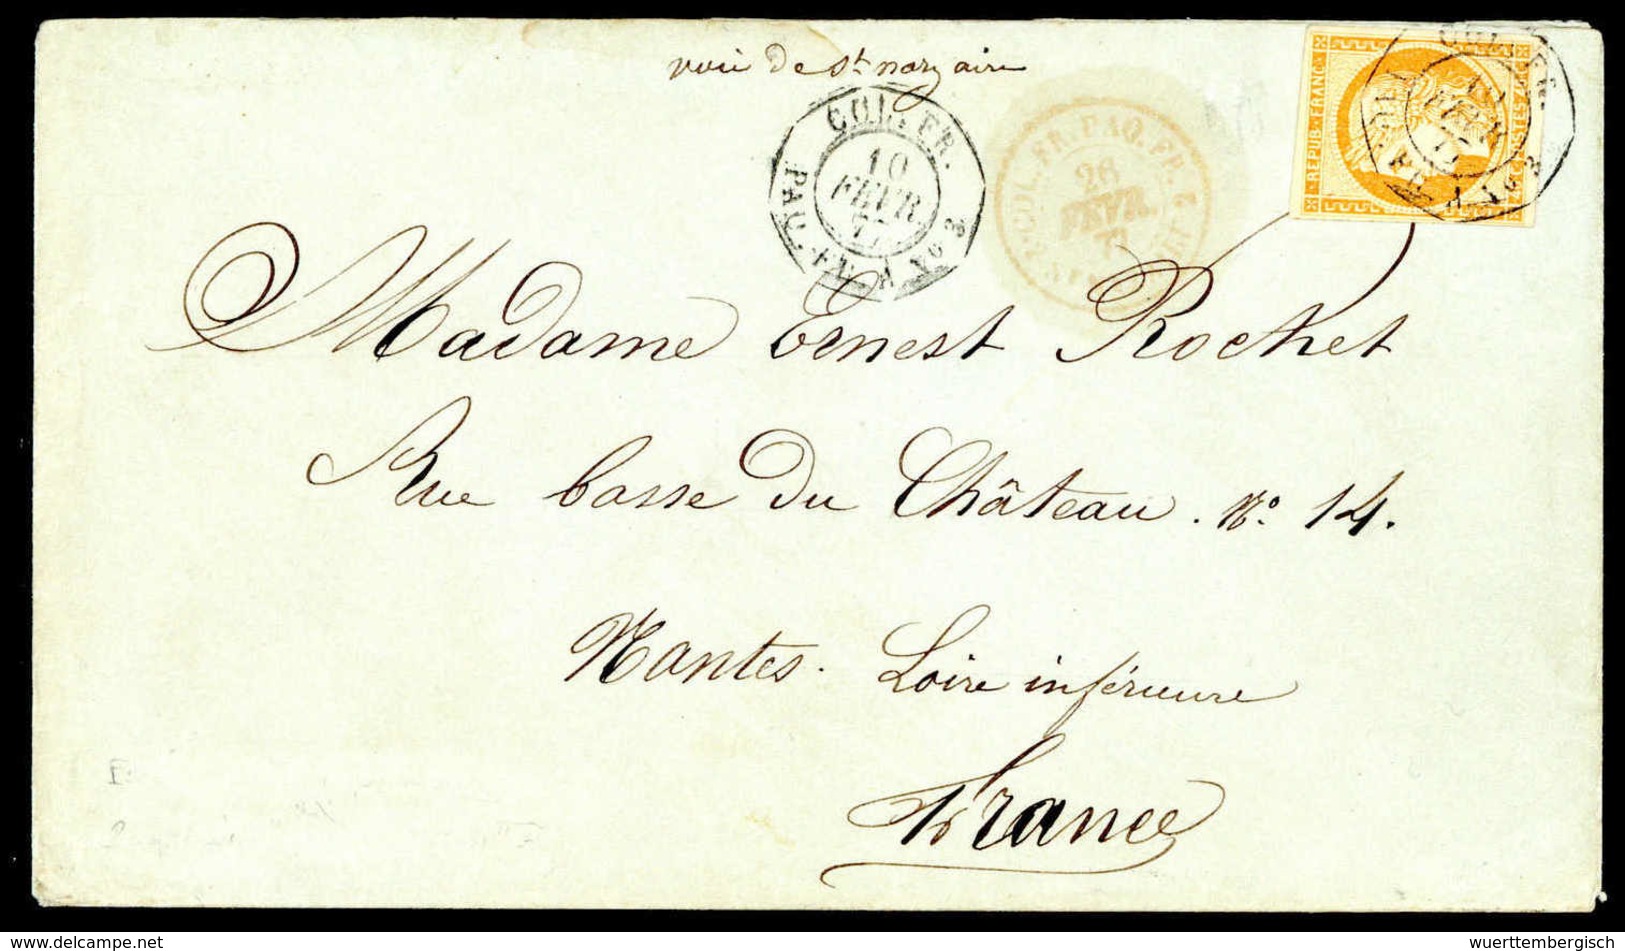 voie de St nazaire
COL. FR.
10
FEVR.
77
PAQ. FR. A No 3
COL. FR. PAQ. FR.
26
FEVR.
REPUB. FRANC.
POSTES
COL. FR.
FEVR.
No 3
Madame Ernest Rochet
Rue basse du Château. No. 14.
Nantes. Loire inférieure
France
www.delcampe.net
wuerttembergisch